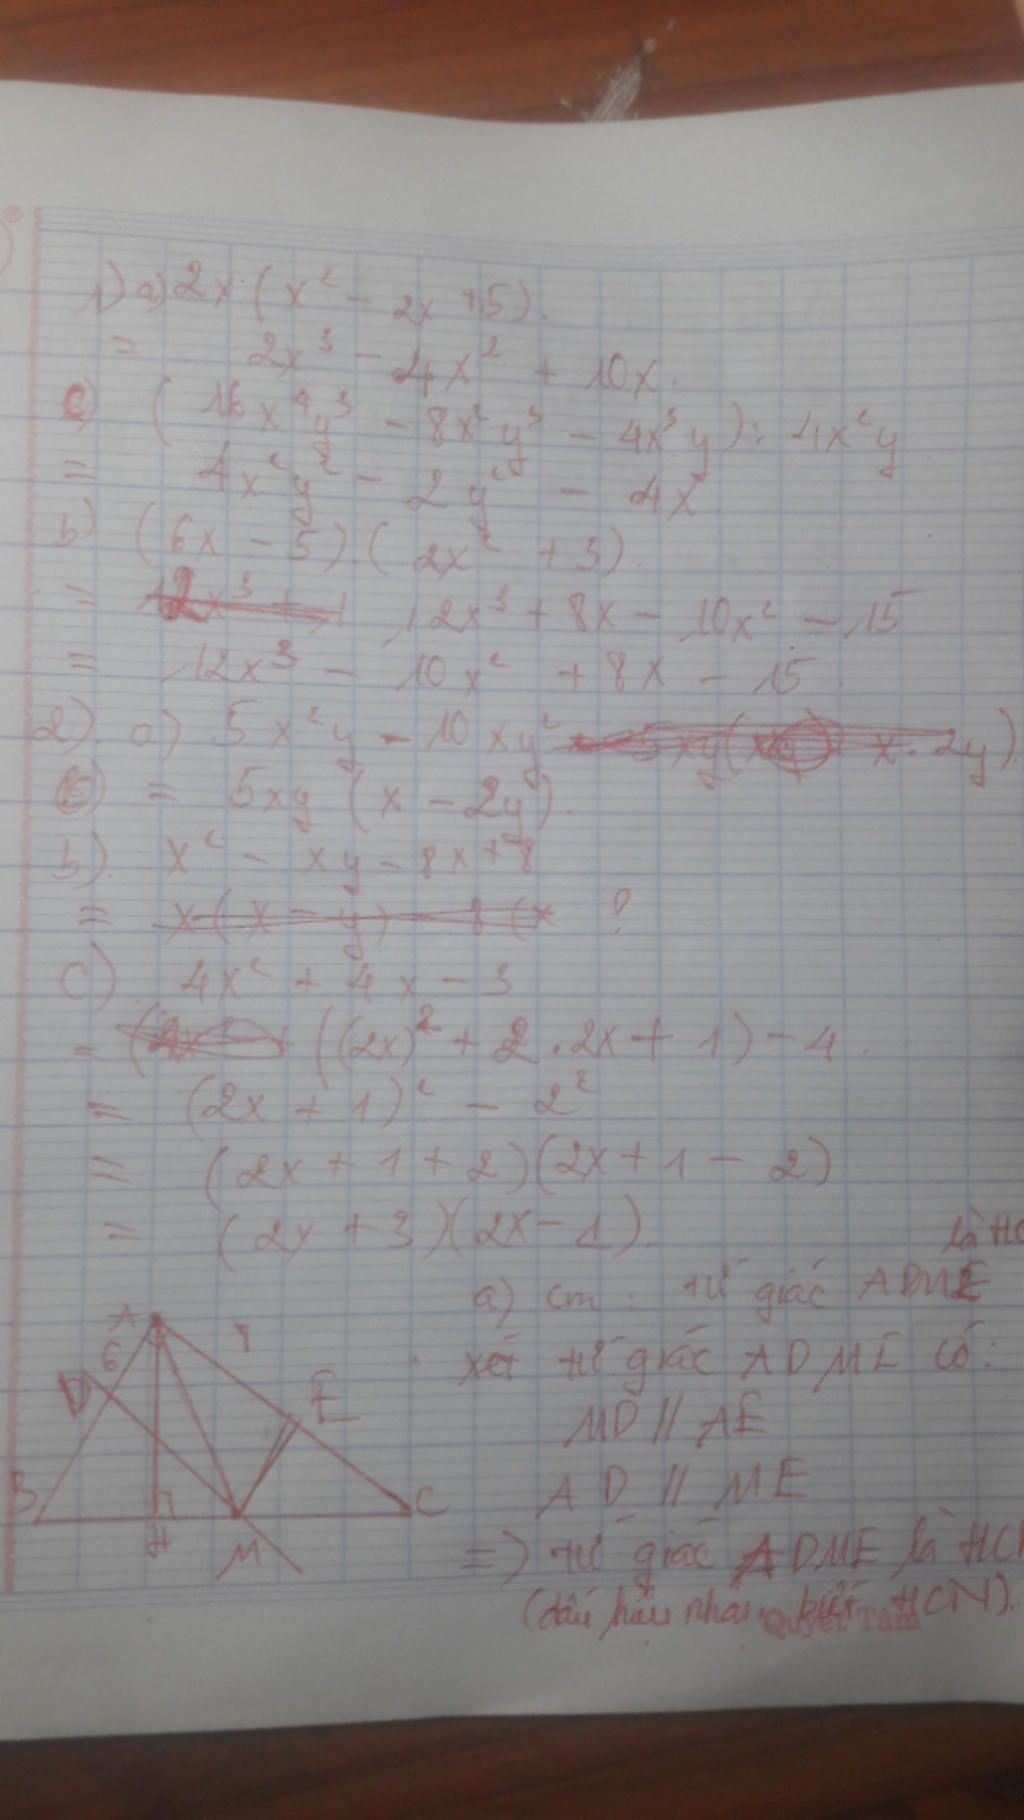 1) a) 2x (x² - 2x + 5).
= 2x³ - 4x² + 10x.
c) (16x⁴y³ - 8x²y³ - 4x³y) : 4x²y
= 4x²y² - 2y² - 4x
b) (6x - 5).(2x² + 3)
= 12x³ + 8x - 10x² - 15
= 12x³ - 10x² + 8x - 15
2). a) 5x²y - 10xy²
= 5xy (x - 2y).
b). x² - xy - 8x + 8
= x(x - y) - 8(x ?
c) 4x² + 4x - 3
= ((2x)² + 2.2x + 1) - 4.
= (2x + 1)² - 2²
= (2x + 1 + 2)(2x + 1 - 2)
= (2x + 3)(2x - 1).
là HC
a) cm. tứ giác ADME
xét tứ giác ADME có:
MD // AE
AD // ME
=) tứ giác ADME là HC
(dấu hiệu nhận biết HCN).
Quyết Tâm
A
6
D
E
B
H
M
C